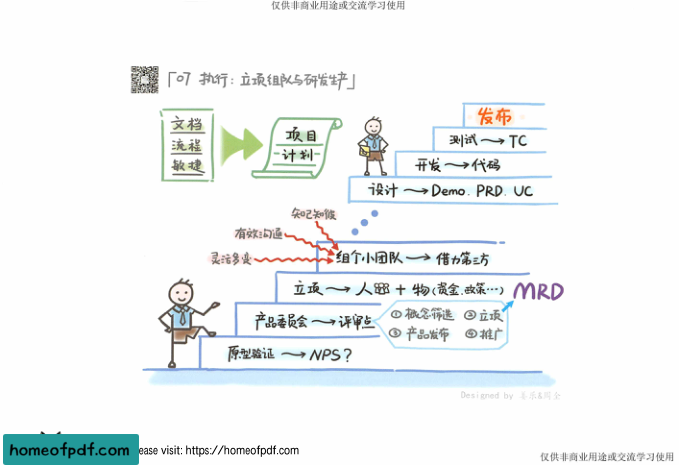 仅供非商业用途或交流学习使用
「07 执行：立项组队与研发生产」
文档
流程
敏捷
项目
计划
发布
测试→TC
开发→代码
设计→Demo、PRD、UC
知己知彼
有效沟通
灵活多变
组个小团队→借力第三方
立项→人 + 物(资金、政策…)
MRD
产品委员会→评审点
①概念筛选 ②立项
③产品发布 ④推广
原型验证→NPS?
Designed by
homeofpdf.com
ease visit: https://homeofpdf.com
仅供非商业用途或交流学习使用